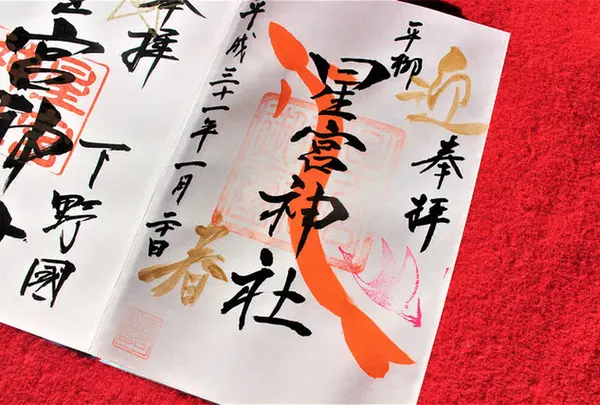 迎春
奉拝
平柳
星宮神社
平成三十一年一月元日
奉拝
下野國
宮神